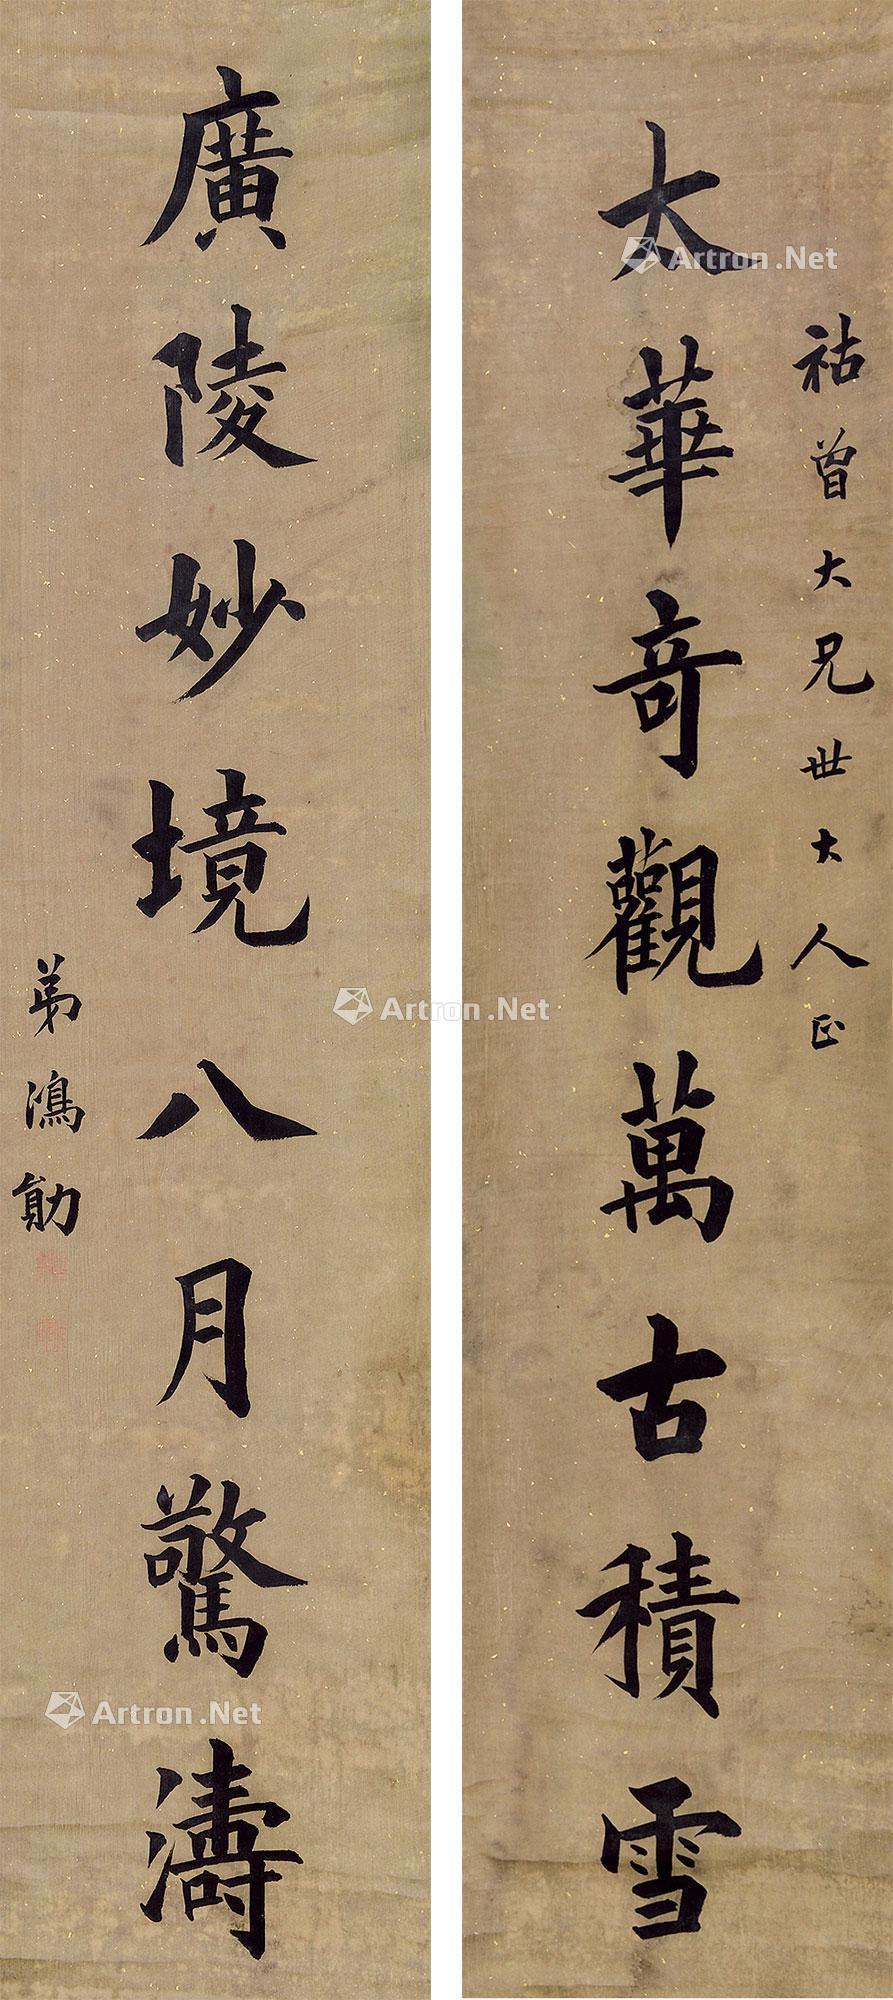 祜曾大兄世大人正
太華奇觀萬古積雪
廣陵妙境八月驚濤
弟鴻勛
Artron.Net
Artron.Net
Artron.Net